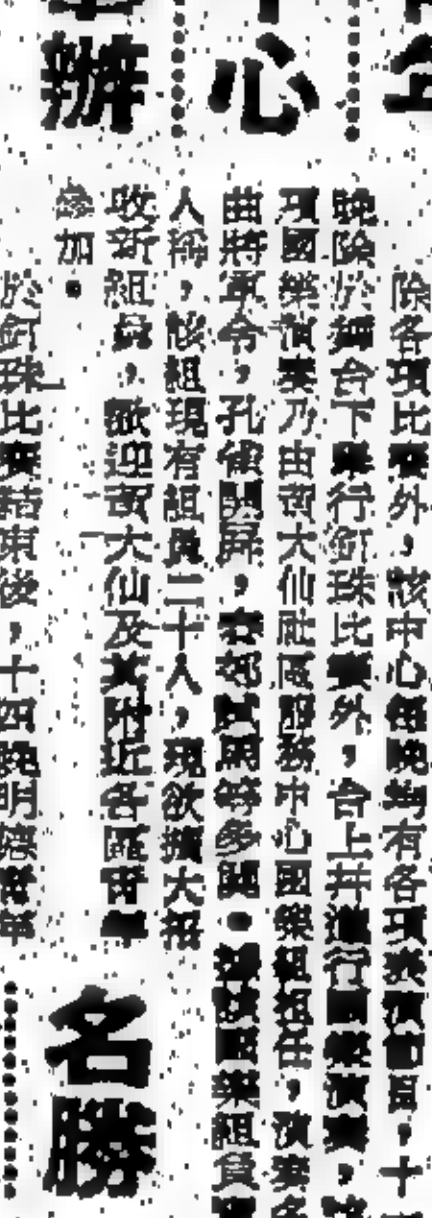 心
辦
除各項比賽外，該中心每晚均有各項表演節目，十
晚除於舞台下舉行釘珠比賽外，台上并進行國樂演奏，
項國樂演奏乃由黃大仙社區服務中心國樂組担任，演奏名
曲將軍令，孔雀開屏，春郊試馬等多闋。據該國樂組負
人稱，該組現有組員二十人，現欲擴大招
收新組員，歡迎黃大仙及其附近各區青年
參加。
於釘珠比賽結束後，十四晚明愛青年
名勝